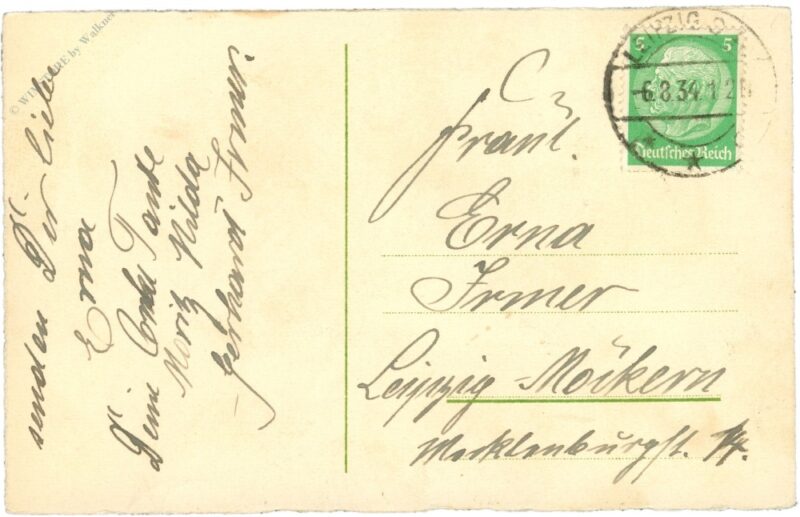 © WINTTERE by Walkner
senden Dir liebe
Erna
Deine Onkel Tante
Moritz Hilda
Gerhard Irmer.
LEIPZIG
-6.8.34.12
5 5
Deutsches Reich
Fräul.
Erna
Irmer
Leipzig-Möckern
Mecklenburgst. 14.